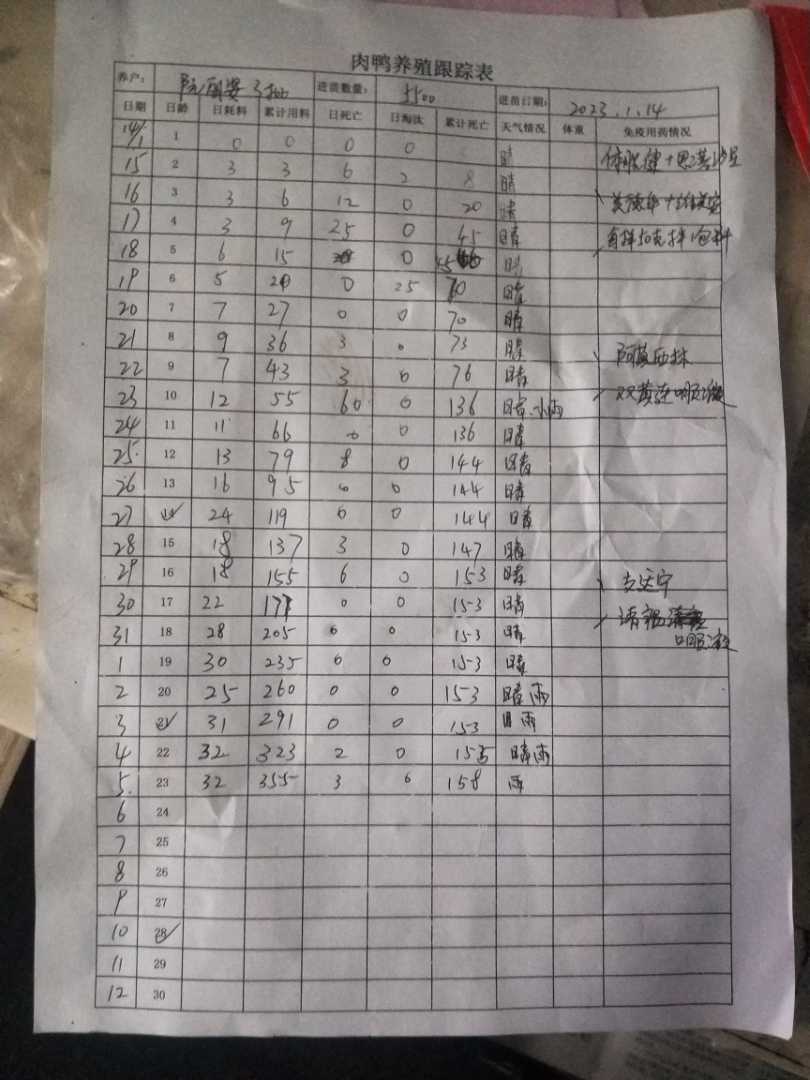 肉鸭养殖跟踪表
养户： 进苗数量： 5500 进苗日期： 2023.1.14
日期 日龄 日耗料 累计用料 日死亡 日淘汰 累计死亡 天气情况 体重 免疫用药情况
14/1 1 0 0 0 0 晴
15 2 3 3 6 2 8 晴
16 3 3 6 12 0 20 晴
17 4 3 9 25 0 45 晴
18 5 6 15 0 45 晴
19 6 5 20 0 25 70 晴
20 7 7 27 0 0 70 晴
21 8 9 36 3 0 73 晴 阿莫西林
22 9 7 43 3 0 76 晴
23 10 12 55 60 0 136 晴.小雨 双黄连口服液
24 11 11 66 0 0 136 晴
25 12 13 79 8 0 144 晴
26 13 16 95 0 0 144 晴
27 14 24 119 0 0 144 晴
28 15 18 137 3 0 147 晴
29 16 18 155 6 0 153 晴
30 17 22 177 0 0 153 晴
31 18 28 205 0 0 153 晴 口服液
1 19 30 235 0 0 153 晴
2 20 25 260 0 0 153 晴雨
3 21 31 291 0 0 153 晴雨
4 22 32 323 2 0 155 晴雨
5 23 32 355 3 0 158 雨
6 24
7 25
8 26
9 27
10 28
11 29
12 30